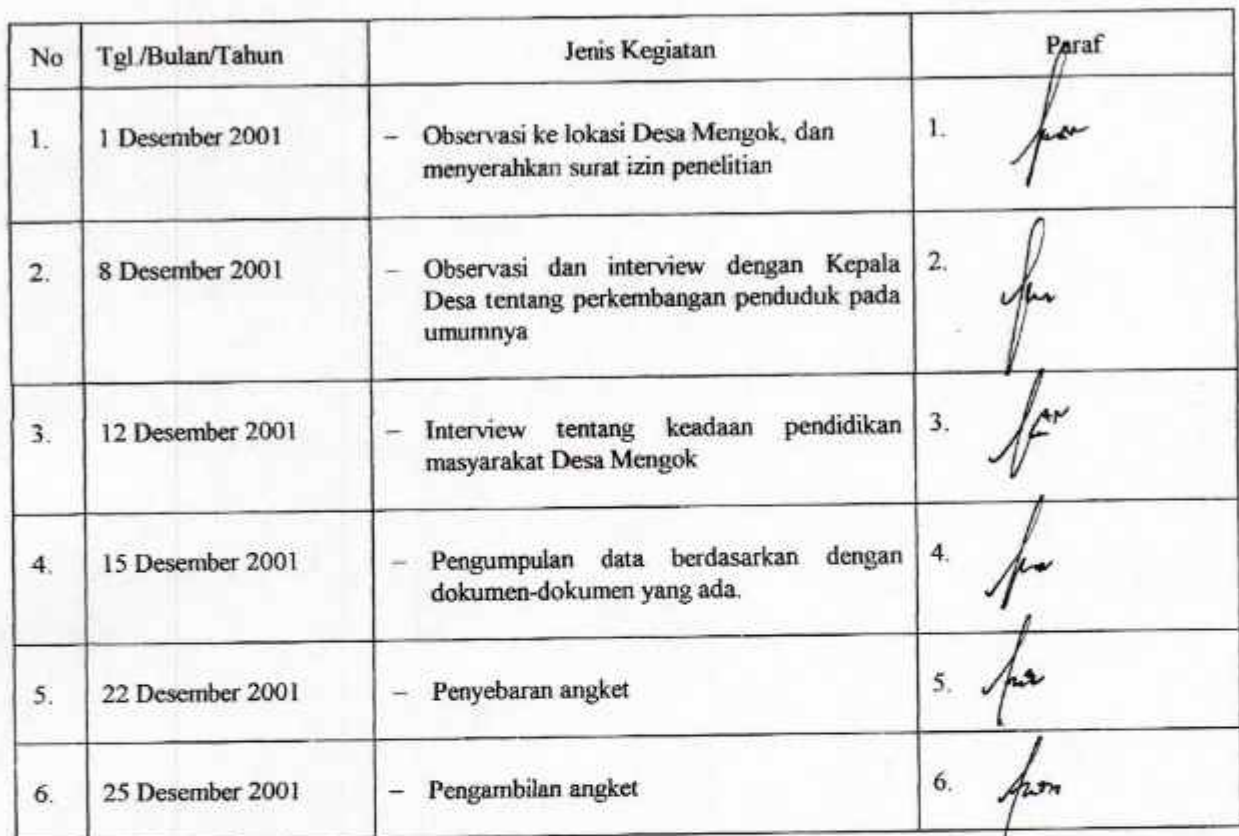 No Tgl./Bulan/Tahun Jenis Kegiatan Paraf
1. 1 Desember 2001 – Observasi ke lokasi Desa Mengok, dan 1.
menyerahkan surat izin penelitian
2. 8 Desember 2001 – Observasi dan interview dengan Kepala 2.
Desa tentang perkembangan penduduk pada
umumnya
3. 12 Desember 2001 – Interview tentang keadaan pendidikan 3.
masyarakat Desa Mengok
4. 15 Desember 2001 – Pengumpulan data berdasarkan dengan 4.
dokumen-dokumen yang ada.
5. 22 Desember 2001 – Penyebaran angket 5.
6. 25 Desember 2001 – Pengambilan angket 6.